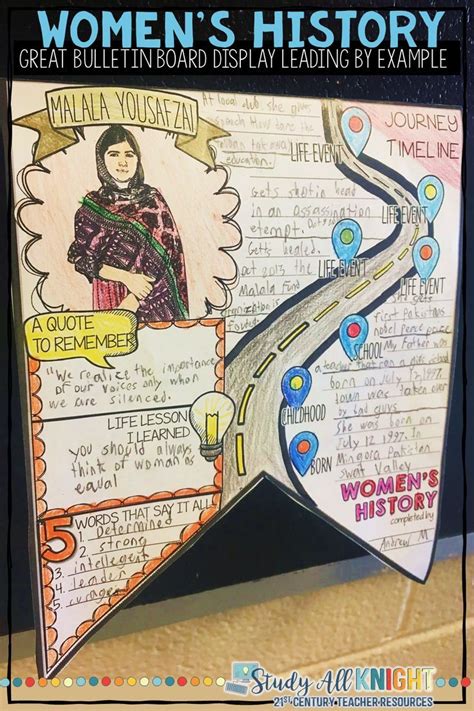 WOMEN'S HISTORY
GREAT BULLETIN BOARD DISPLAY LEADING BY EXAMPLE
MALALA YOUSAFZAI
A QUOTE
TO REMEMBER
"We realize the importance
of our voices only when
we are silenced.
LIFE LESSON
I LEARNED
you should always
think of woman as
equal
5 WORDS THAT SAY IT ALL
1. Determined
2. strong
3. intellegent
4. leader
5.
JOURNEY
TIMELINE
At local club she gives
speech How dare the
taliban
education.
LIFE EVENT
Gets shot in head
in an assassination
Gets healed.
LIFE EVENT
at 2013 the
Malala fund
founded
LIFE EVENT
LIFE EVENT
She gets
first Pakistani
nobel peace
SCHOOL
My Father was
a teacher that ran a
born on July 12, 1997.
CHILDHOOD
town was taken over
by bad guys
She was born on
July 12 1997. In
BORN
Mingora Pakistan
Swat Valley
WOMEN'S
HISTORY
completed by
Andrew M
Study All KNIGHT
21ST CENTURY TEACHER RESOURCES